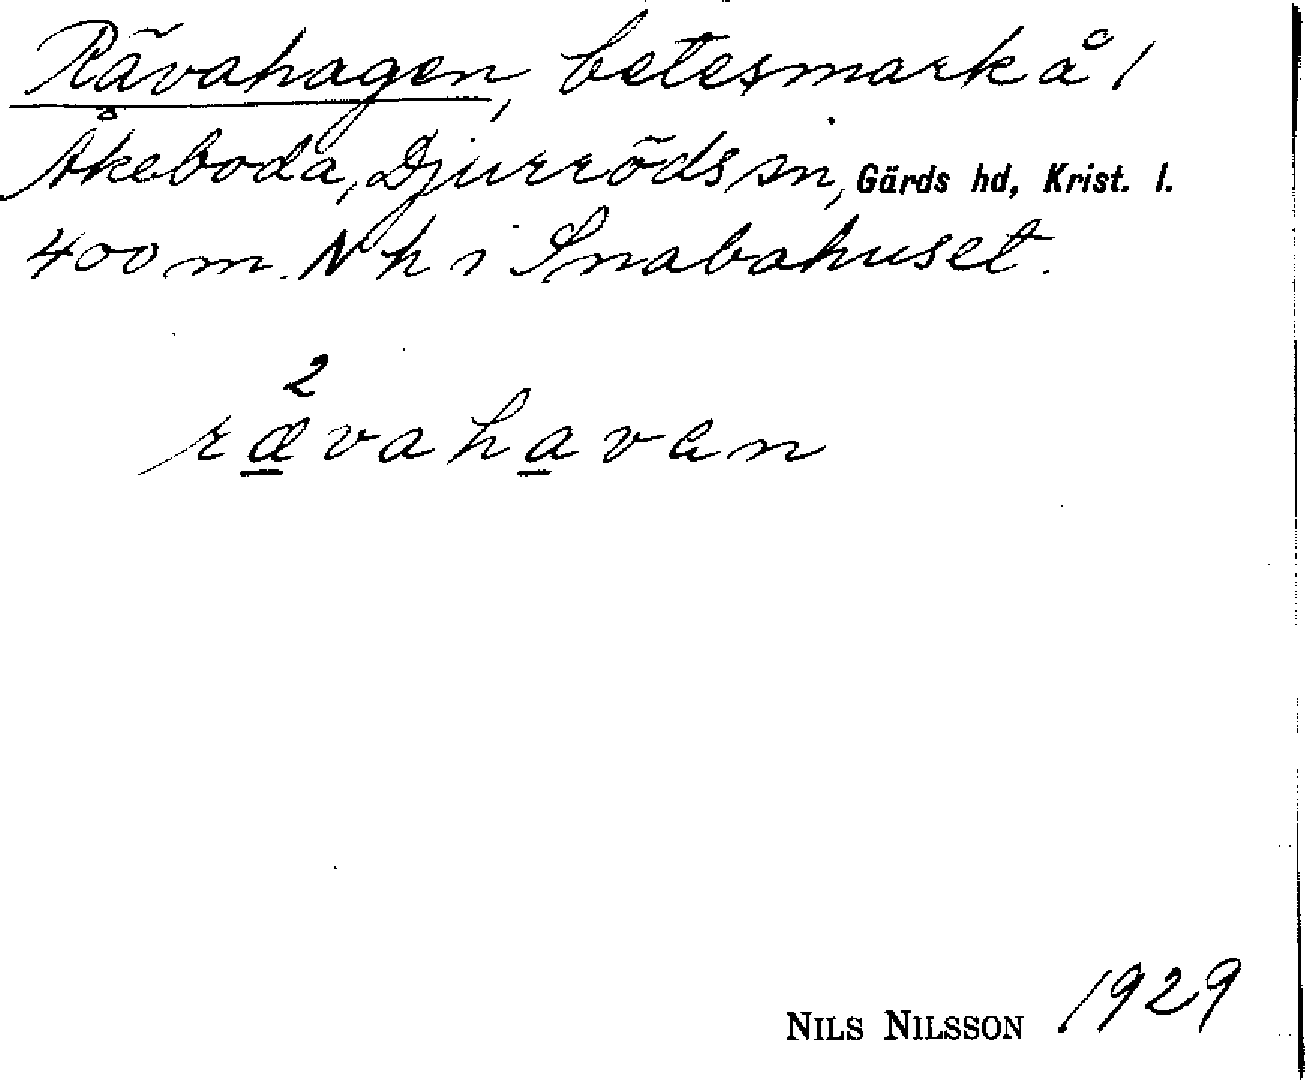 Rävahagen, betesmark å 1
Åkeboda, Djurröds sn, Gärds hd, Krist. l.
400 m. N h i Snabahuset.
2
rævahavan
NILS NILSSON 1929